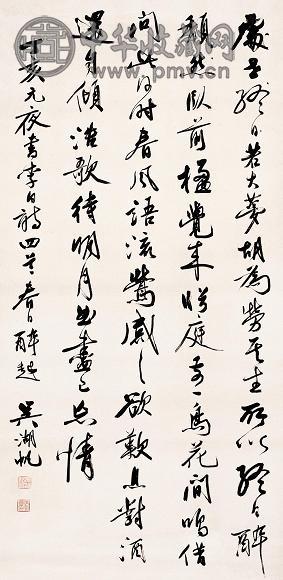 處世終日若大夢胡為勞其生所以終日醉
頹然臥前楹覺來眄庭前一鳥花間鳴借
問此何時春風語流鶯感之欲歎息對酒
還自傾浩歌待明月曲盡已忘情
丁亥元夜書李白詩四首春日醉起 吳湖帆